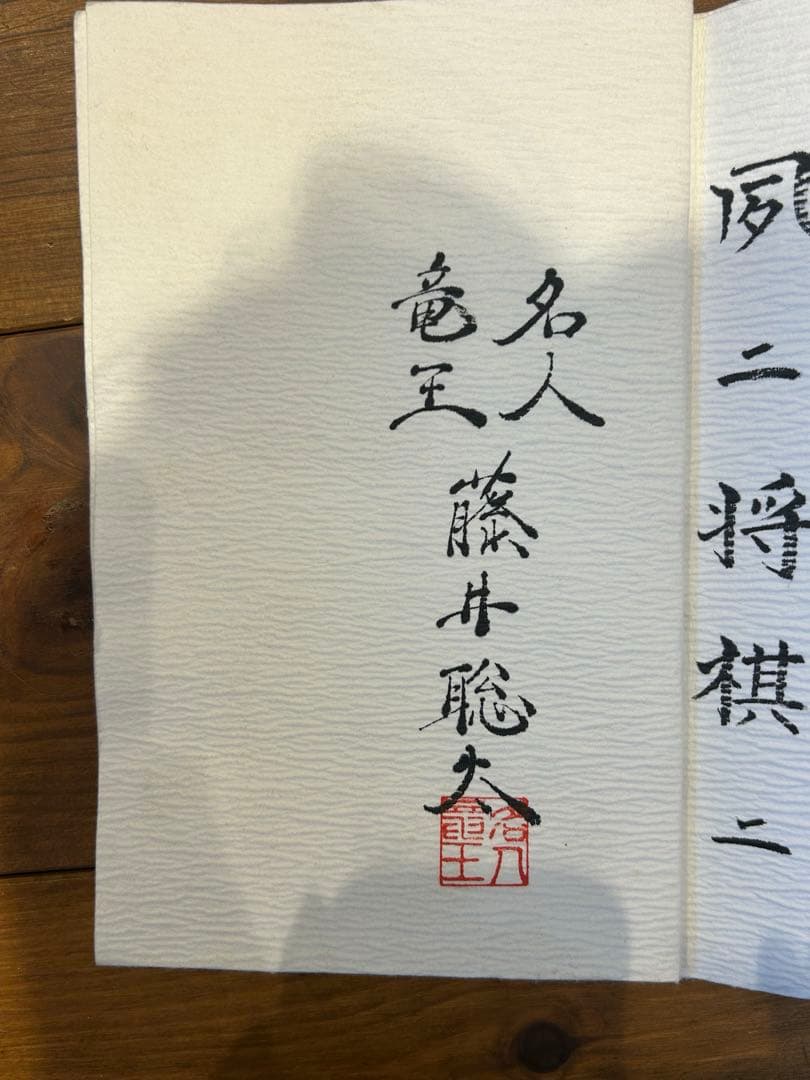 夙ニ将棋ニ
名人
竜王
藤井聡太
名人
竜王